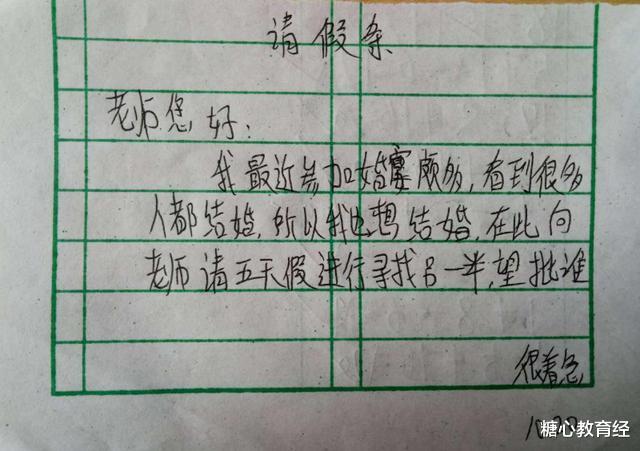 请假条
老师您好:
我最近参加婚宴颇多,看到很多
人都结婚,所以我也想结婚,在此向
老师请五天假进行寻找另一半,望批准
很着急
糖心教育经